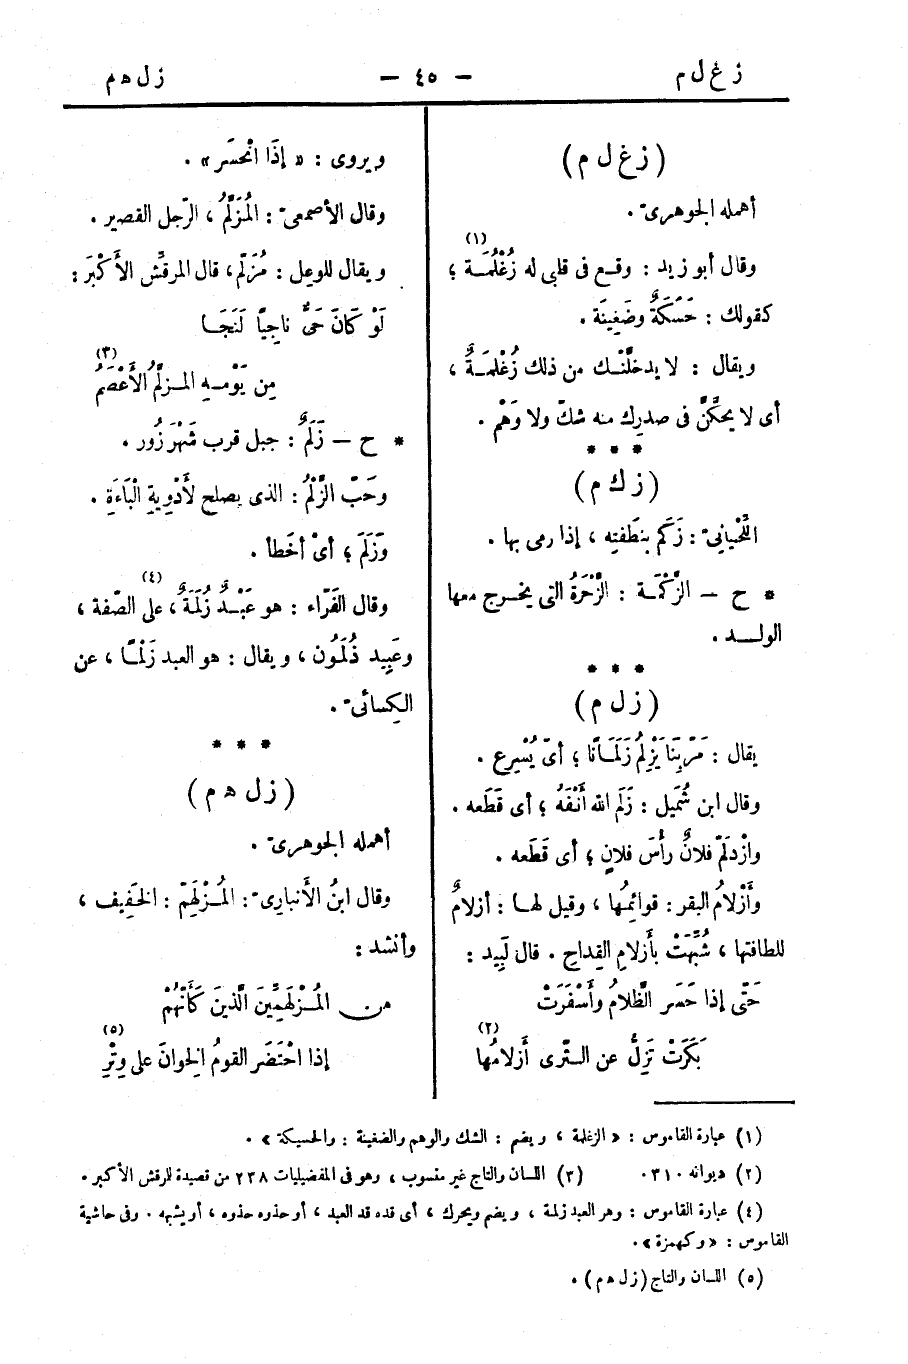 زغ ل م — ٤٥ — زل هم
(زغ ل م)
أهمله الجوهرىّ .
وقال أبو زيد : وقع فى قلبى له زُغْلُمَة(١) ؛
كقولك : حَسَكَةٌ وضَغِينَة .
ويقال : لا يدخلَنْك من ذلك زُغْلمَةٌ ،
أى لا يحكَّنَّ فى صدرِك منه شكّ ولا وَهْم .
* * *
(زك م)
اللِّحْيانىّ : زَكَم بنطفتِه ، إذا رمى بها .
* ح — الزَّكْمَة : الزَّحْرَةُ التى يخرج معها
الولد .
* * *
(زل م)
يقال : مَرّ بِنَا يَزْلِمُ زَلَمَانًا ؛ أىْ يُسْرِع .
وقال ابن شُمَيل : زَلَم الله أَنْفَهُ ؛ أى قَطَعه .
وازْدلَمَ فلانٌ رأْسَ فلانٍ ؛ أى قَطَعه .
وأَزْلامُ البقر : قوائِمُها ، وقيل لها : أزلامٌ
للطافتها ، شُبِّهَتْ بأَزلامِ القِداحِ . قال لَبِيد :
حَتّى إذا حَسَر الظَّلامُ وأَسْفَرَتْ
بَكَرَتْ تَزِلُّ عن الثَّرى أَزلامُها(٢)
ويروى : « إذَا انْحسَر » .
وقال الأصمعىّ : المُزَلَّمُ ، الرّجل القصير .
ويقال للوعِل : مُزَلَّم ، قال المرقِّش الأَكْبَر :
لَوْ كَانَ حَىٌّ ناجِيًا لَنَجَا
مِن يَوْمِهِ المزلَّمُ الأَعْصَمُ(٣)
* ح — زَلَمٌ : جبل قرب شَهْرَزُور .
وحَبّ الزَّلَمُ : الذى يصلح لأَدْوِيةِ الْبَاءَةِ .
وَزَلَمَ ؛ أىْ أخَطأ .
وقال الفَرّاء : هو عَبْدٌ زُلَمَةٌ(٤) ، على الصّفة ،
وعَبِيد ذُلَمُون ، ويقال : هو العبد زَلْمًا ، عن
الكِسائىّ .
* * *
(زل ه م)
أهمله الجوهرىّ .
وقال ابنُ الأَنبارِىّ : المُزْلَهِمّ : الخَفِيف ،
وأنشد :
من المُزْلَهِمِّينَ الَّذينَ كَأَنَّهُمْ
إذا احْتَضَر القومُ الخِوانَ على وِتْرِ(٥)
(١) عبارة القاموس : « الزغلمة ، ويضم : الشك والوهم والضغينة : والحسيكة » .
(٢) ديوانه ٣١٠ . (٣) اللسان والتاج غير منسوب ، وهو فى المفضليات ٢٣٨ من قصيدة للرقش الأكبر .
(٤) عبارة القاموس : وهو العبد زلمة ، ويضم ويحرك ، أى قده قد العبد ، أو حذوه حذوه ، أو يشبهه . وفى حاشية
القاموس : « وكهمزة » .
(٥) اللسان والتاج (زل ه م) .